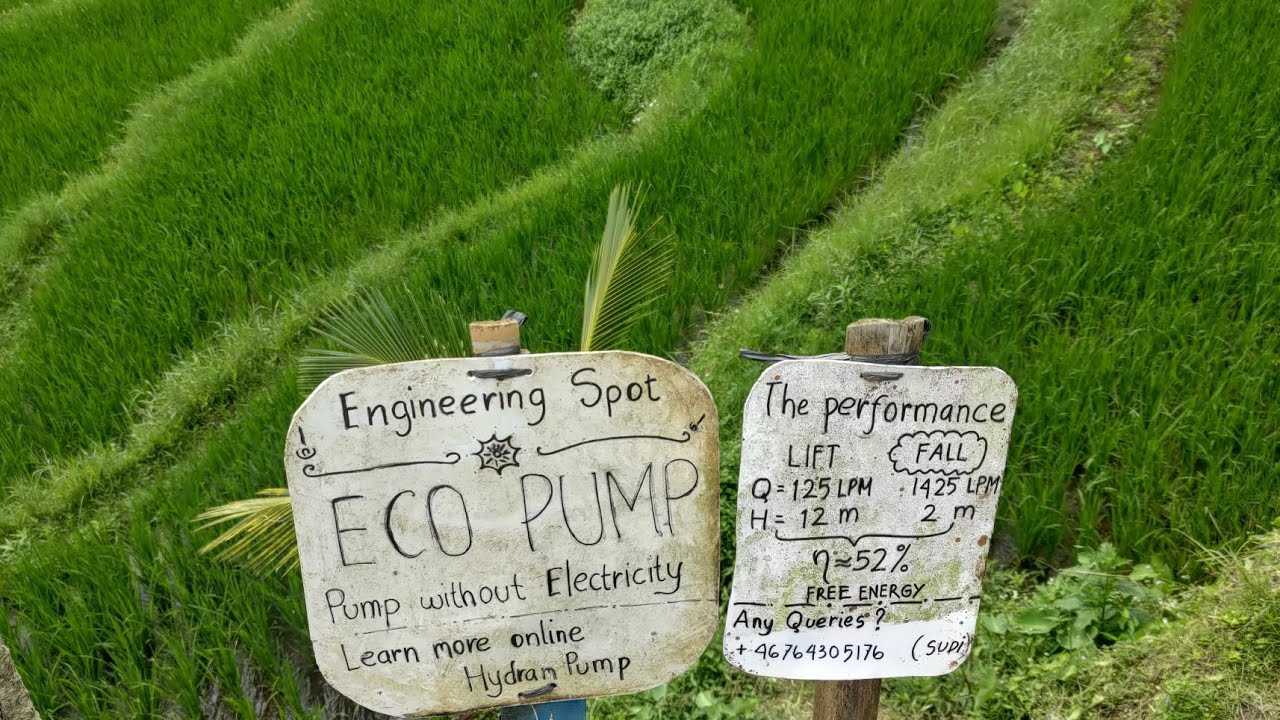 Engineering Spot
ECO PUMP
Pump without Electricity
Learn more online
Hydram Pump
The performance
LIFT FALL
Q = 125 LPM 1425 LPM
H = 12 m 2 m
η≈52%
FREE ENERGY
Any Queries?
+46764305176 (SUDI)